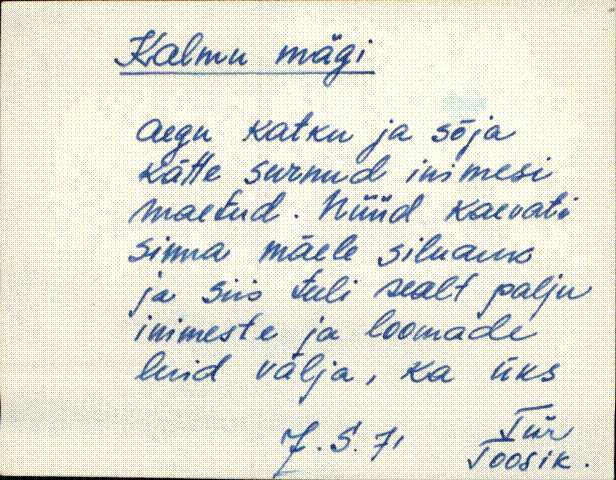 Kalmu mägi
aegu katku ja sõja
kätte surnud inimesi
maetud. Nüüd kaevati
sinna mäele siluauk
ja siis tuli sealt palju
inimeste ja loomade
luid välja, ka üks
7.5.71 Tür
Toosik.